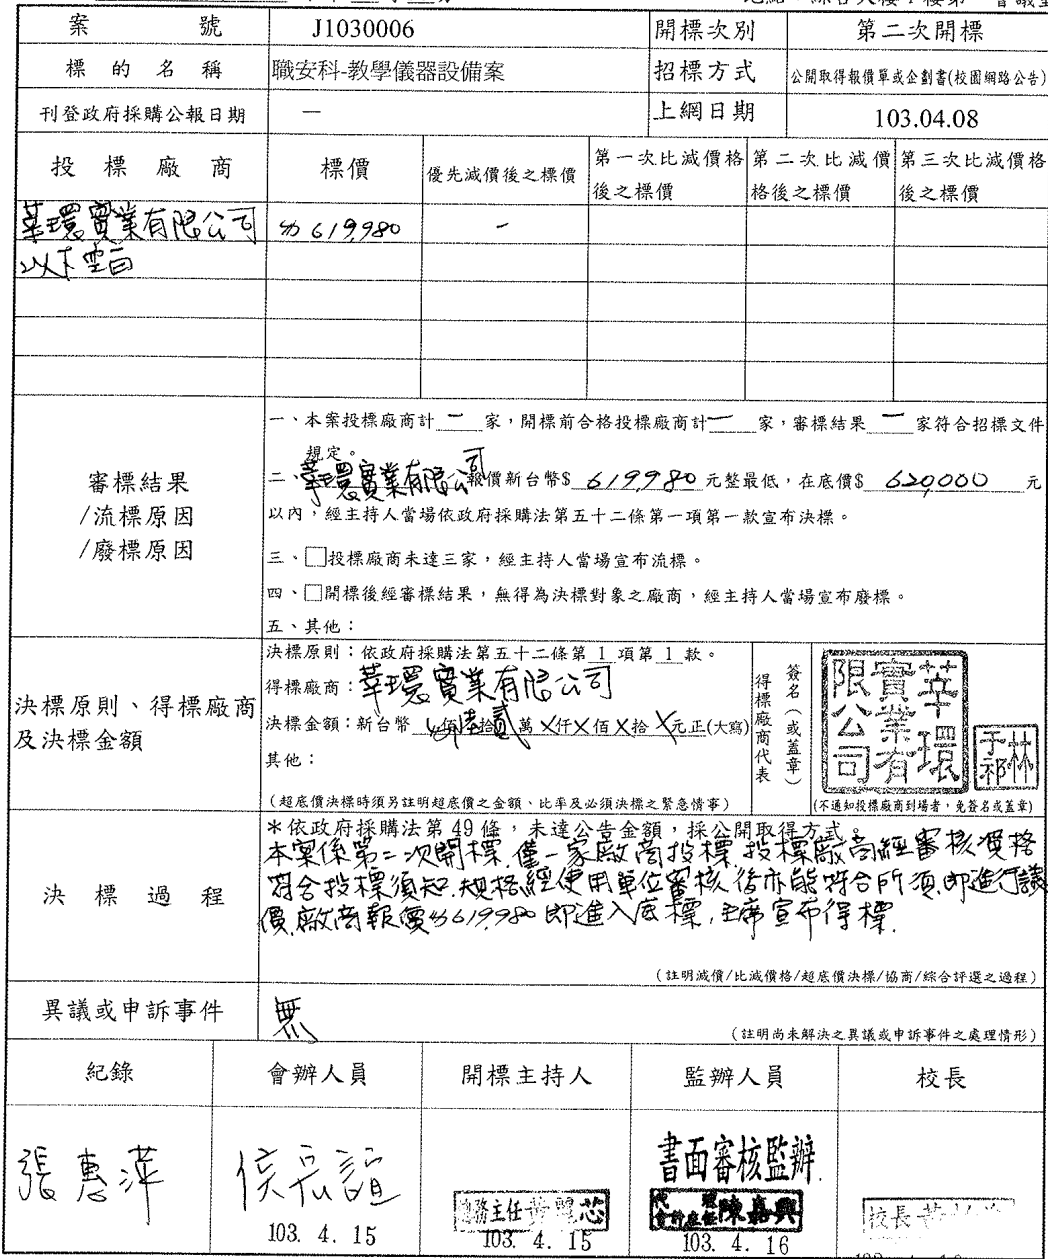 案號 J1030006 開標次別 第二次開標
標的名稱 職安科-教學儀器設備案 招標方式 公開取得報價單或企劃書(校園網路公告)
刊登政府採購公報日期 — 上網日期 103.04.08
投標廠商 標價 優先減價後之標價 第一次比減價格後之標價 第二次比減價格後之標價 第三次比減價格後之標價
莘環實業有限公司 619,980 -
以下空白
審標結果
/流標原因
/廢標原因
一、本案投標廠商計 一 家,開標前合格投標廠商計 一 家,審標結果 一 家符合招標文件
規定。
二、莘環實業有限公司報價新台幣$ 619,980 元整最低,在底價$ 620,000 元
以內,經主持人當場依政府採購法第五十二條第一項第一款宣布決標。
三、□投標廠商未達三家,經主持人當場宣布流標。
四、□開標後經審標結果,無得為決標對象之廠商,經主持人當場宣布廢標。
五、其他:
決標原則、得標廠商
及決標金額
決標原則:依政府採購法第五十二條第 1 項第 1 款。
得標廠商:莘環實業有限公司
決標金額:新台幣 佰陸拾貳萬X仟X佰X拾X元正(大寫)
其他:
(超底價決標時須另註明超底價之金額、比率及必須決標之緊急情事)
得標廠商代表
簽名(或蓋章)
莘環實業有限公司
林于祁
(不通知投標廠商到場者,免簽名或蓋章)
決標過程
*依政府採購法第49條,未達公告金額,採公開取得方式。
本案係第二次開標,僅一家廠商投標,投標廠商經審核價格
符合投標須知,規格經使用單位審核後亦能符合所須,即進行議
價,廠商報價619,980即進入底標,主席宣布得標.
(註明減價/比減價格/超底價決標/協商/綜合評選之過程)
異議或申訴事件 無
(註明尚未解決之異議或申訴事件之處理情形)
紀錄 會辦人員 開標主持人 監辦人員 校長
張惠萍
103. 4. 15
總務主任
103. 4. 15
書面審核監辦
陳嘉興
103. 4. 16
校長